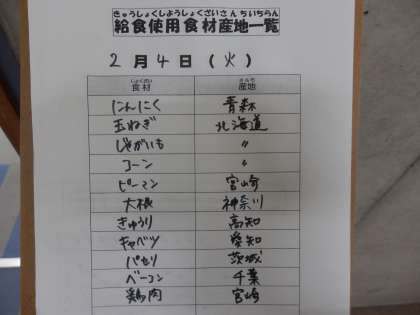 きゅうしょくしようしょくざいさんちいちらん
給食使用食材産地一覧
2月4日(火)
しょくざい さんち
食材 産地
にんにく 青森
玉ねぎ 北海道
じゃがいも 〃
コーン 〃
ピーマン 宮崎
大根 神奈川
きゅうり 高知
キャベツ 愛知
パセリ 茨城
ベーコン 千葉
鶏肉 宮崎